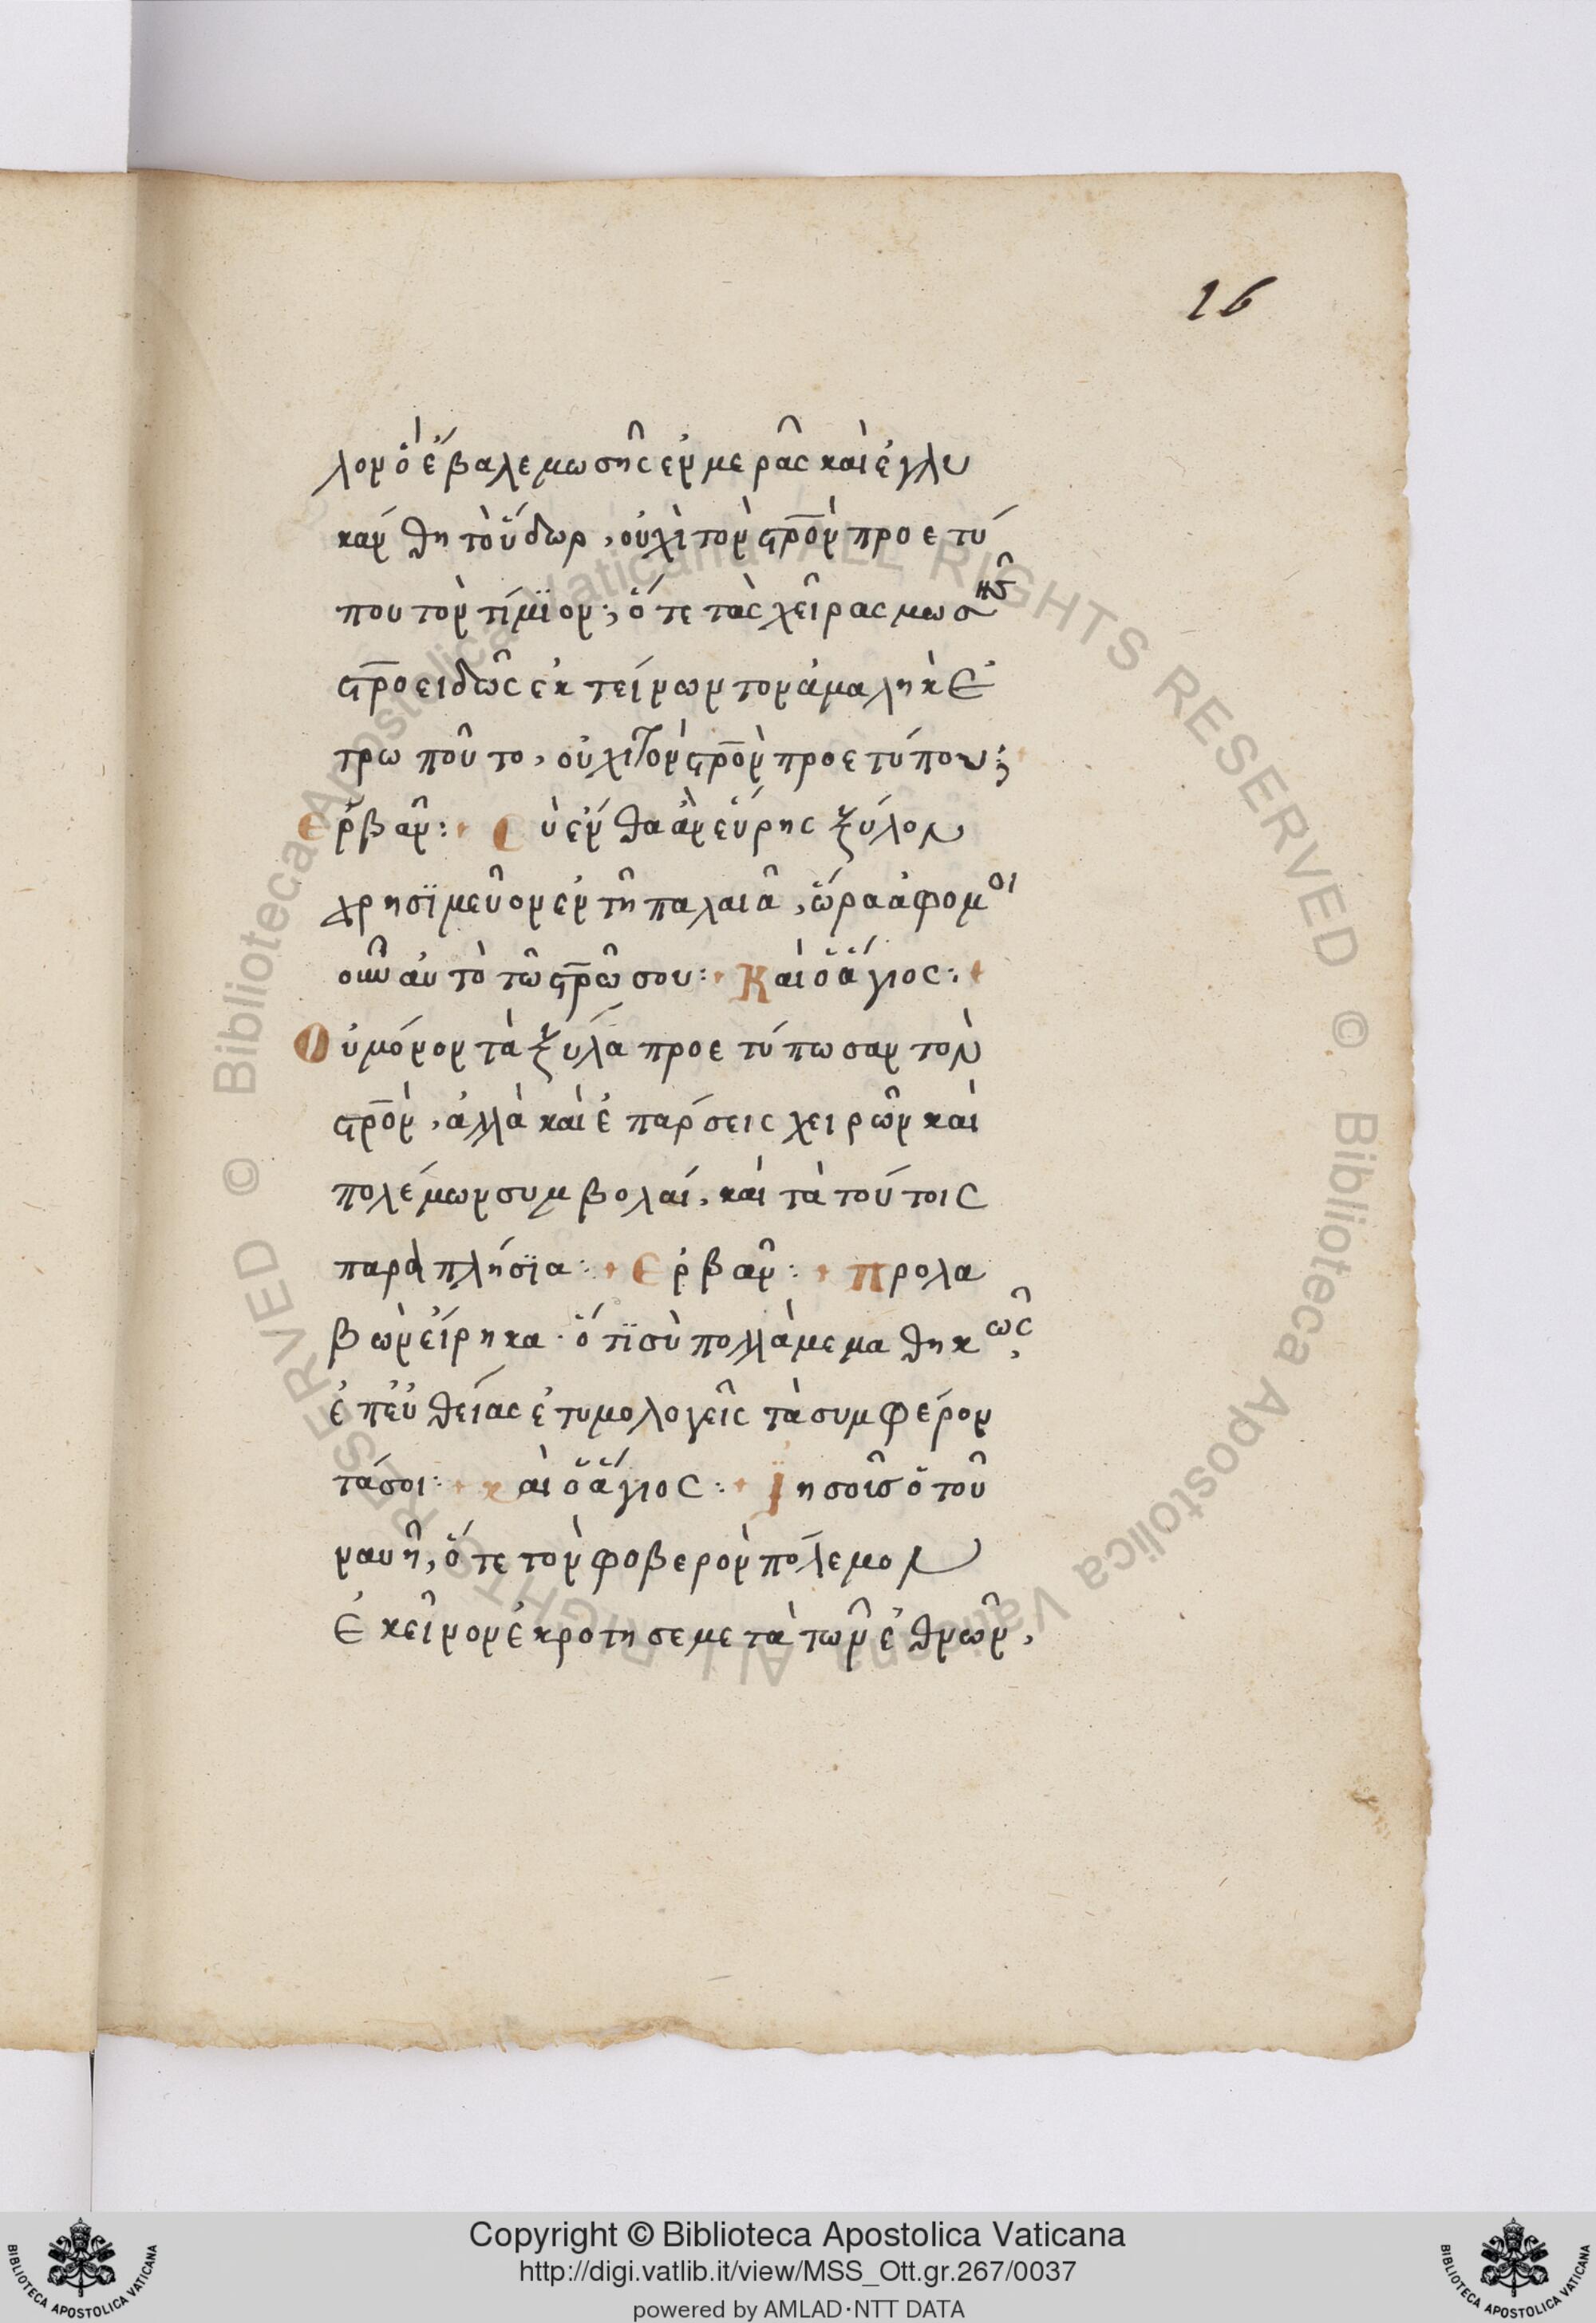 26
λον ὃ ἔβαλε μωσῆς ἐν μερᾶς καὶ ἐγλυ
κάνθη τὸ ὕδωρ, οὐχὶ τὸν σ̅ρ̅ο̅ν̅ προετύ
που τὸν τίμϊον; ὅτε τὰς χεῖρας μωσῆς
σ̅ρ̅οειδῶς ἐκτείνων τὸν ἀμαλὴκ ἐ
τρωποῦτο, οὐχὶ τὸν σ̅ρ̅ο̅ν̅ προετύπου;
ἑρβᾶν: Σὺ ἔνθα ἂν εὕρης ξύλον
χρησϊμεῦον ἐν τῆ παλαιᾶ, ὥρα ἀφομοι
οῖν αὐτὸ τῶ σ̅ρ̅ῶ σου: Καὶ ὁ ἅγιος:
Οὐ μόνον τὰ ξύλα προετύπωσαν τὸν
σ̅ρ̅ὸν, ἀλλὰ καὶ ἐπάρσεις χειρῶν καὶ
πολέμων συμβολαί, καὶ τὰ τούτοις
παραπλήσϊα: Ερβᾶν: Προλα
βὼν εἴρηκα· ὅτϊ σὺ πολλὰ μεμαθηκῶς,
ἐπευθείας ἐτυμολογεῖς τὰ συμφέρον
τά σοι: καὶ ὁ ἅγιος: Ϊησοῦς ὁ τοῦ
ναυῆ, ὅτε τὸν φοβερὸν πόλεμον
ἐκεῖνον ἐκρότησε μετὰ τῶν ἐθνῶν,
Copyright © Biblioteca Apostolica Vaticana
http://digi.vatlib.it/view/MSS_Ott.gr.267/0037
powered by AMLAD·NTT DATA
BIBLIOTECA APOSTOLICA VATICANA
BIBLIOTECA APOSTOLICA VATICANA
© Biblioteca Apostolica Vaticana ALL RIGHTS RESERVED © Biblioteca Apostolica Vaticana ALL RIGHTS RESERVED